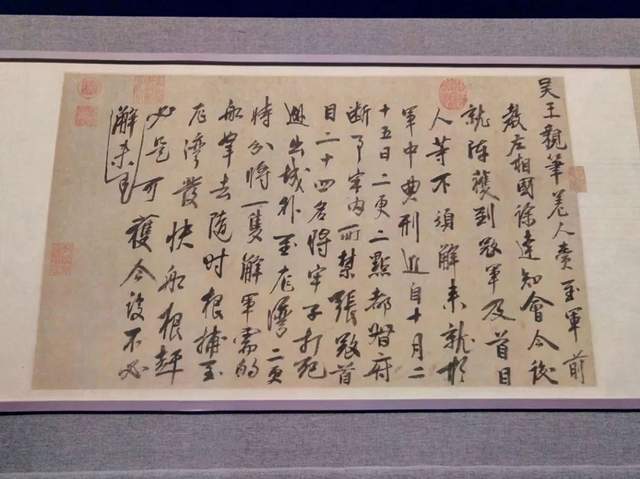 吴王親筆差人賫至軍前
教左相國徐達知會今後
就陣獲到寇軍及首目
人等不須解来就於
軍中典刑近自十月二
十五日二更二點都督府
断事官内所禁張寇首
目二十四名將牢子打死
越出城外至龙灣二更
時分將一隻解軍需的
船拏去隨时根捕至
龙灣發快船根趕
必是可獲今後不必
解来也